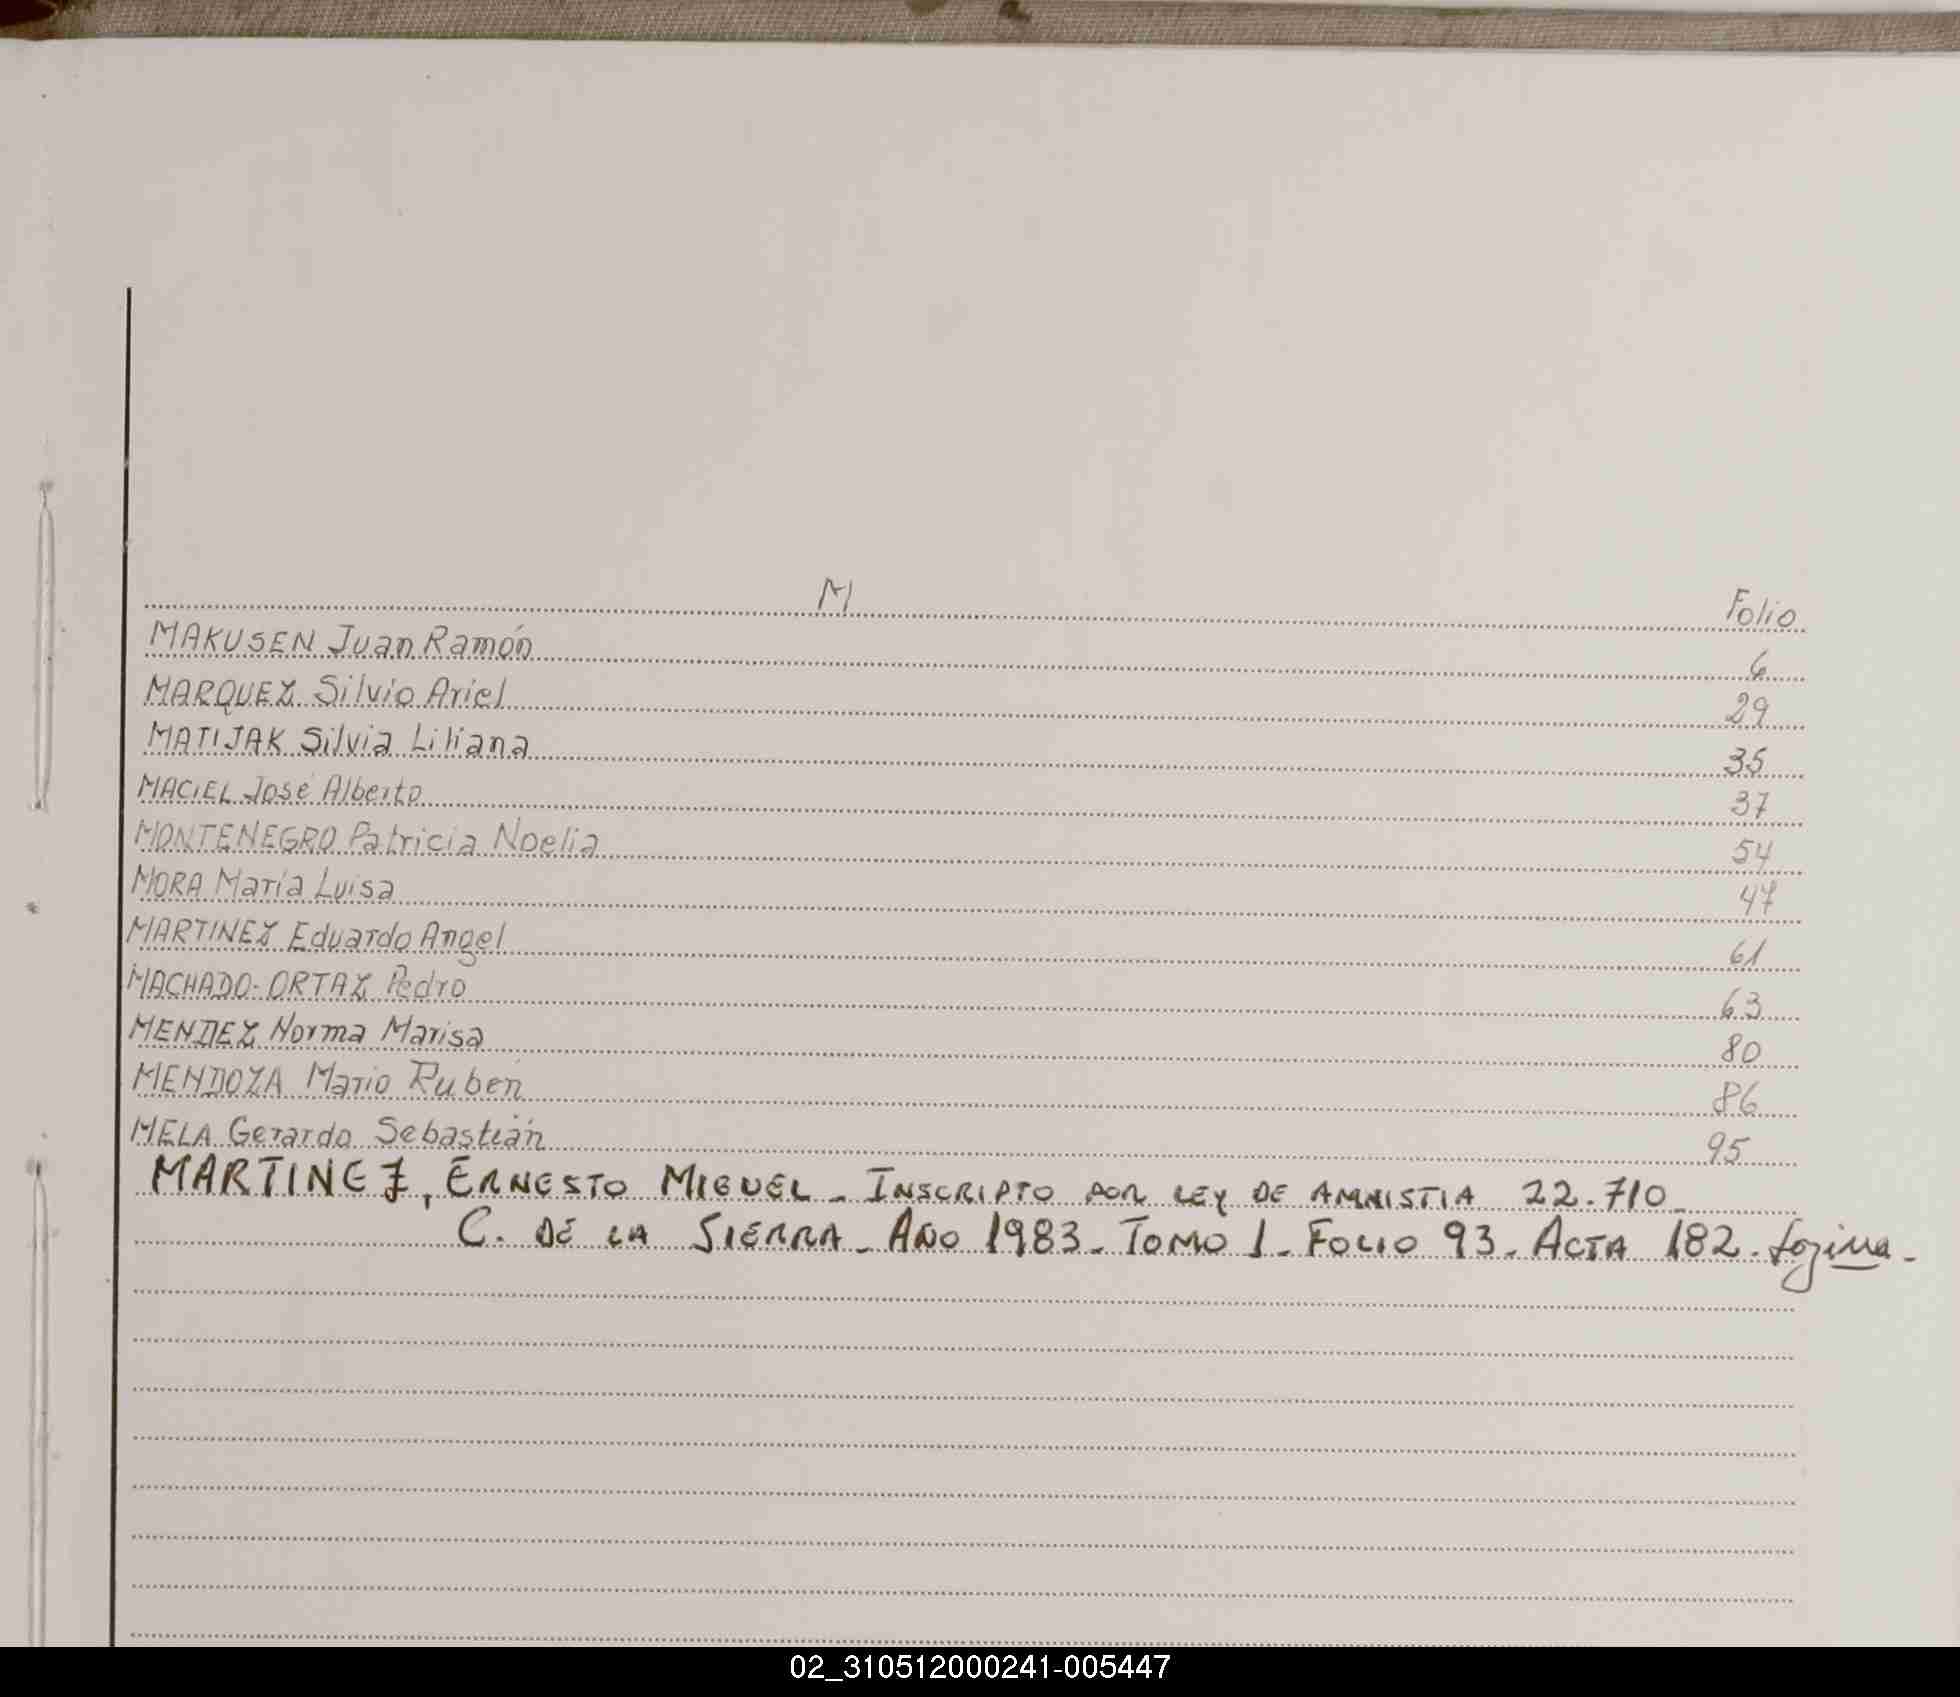 M Folio
MAKUSEN Juan Ramón 6
MARQUEZ Silvio Ariel 29
MATIJAK Silvia Liliana 35
MACIEL José Alberto 37
MONTENEGRO Patricia Noelia 54
MORA María Luisa 47
MARTINEZ Eduardo Angel 61
MACHADO-ORTAZ Pedro 63
MENDEZ Norma Marisa 80
MENDOZA Mario Rubén 86
MELA Gerardo Sebastián 95
MARTINEZ, ERNESTO MIGUEL - INSCRIPTO POR LEY DE AMNISTIA 22.710 -
C. DE LA SIERRA - AÑO 1983 - TOMO 1 - FOLIO 93 - ACTA 182 -
02_310512000241-005447